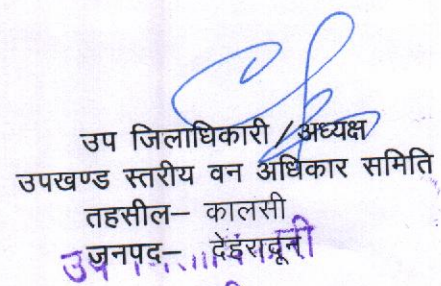 उप जिलाधिकारी / अध्यक्ष
उपखण्ड स्तरीय वन अधिकार समिति
तहसील– कालसी
जनपद– देहरादून
उप